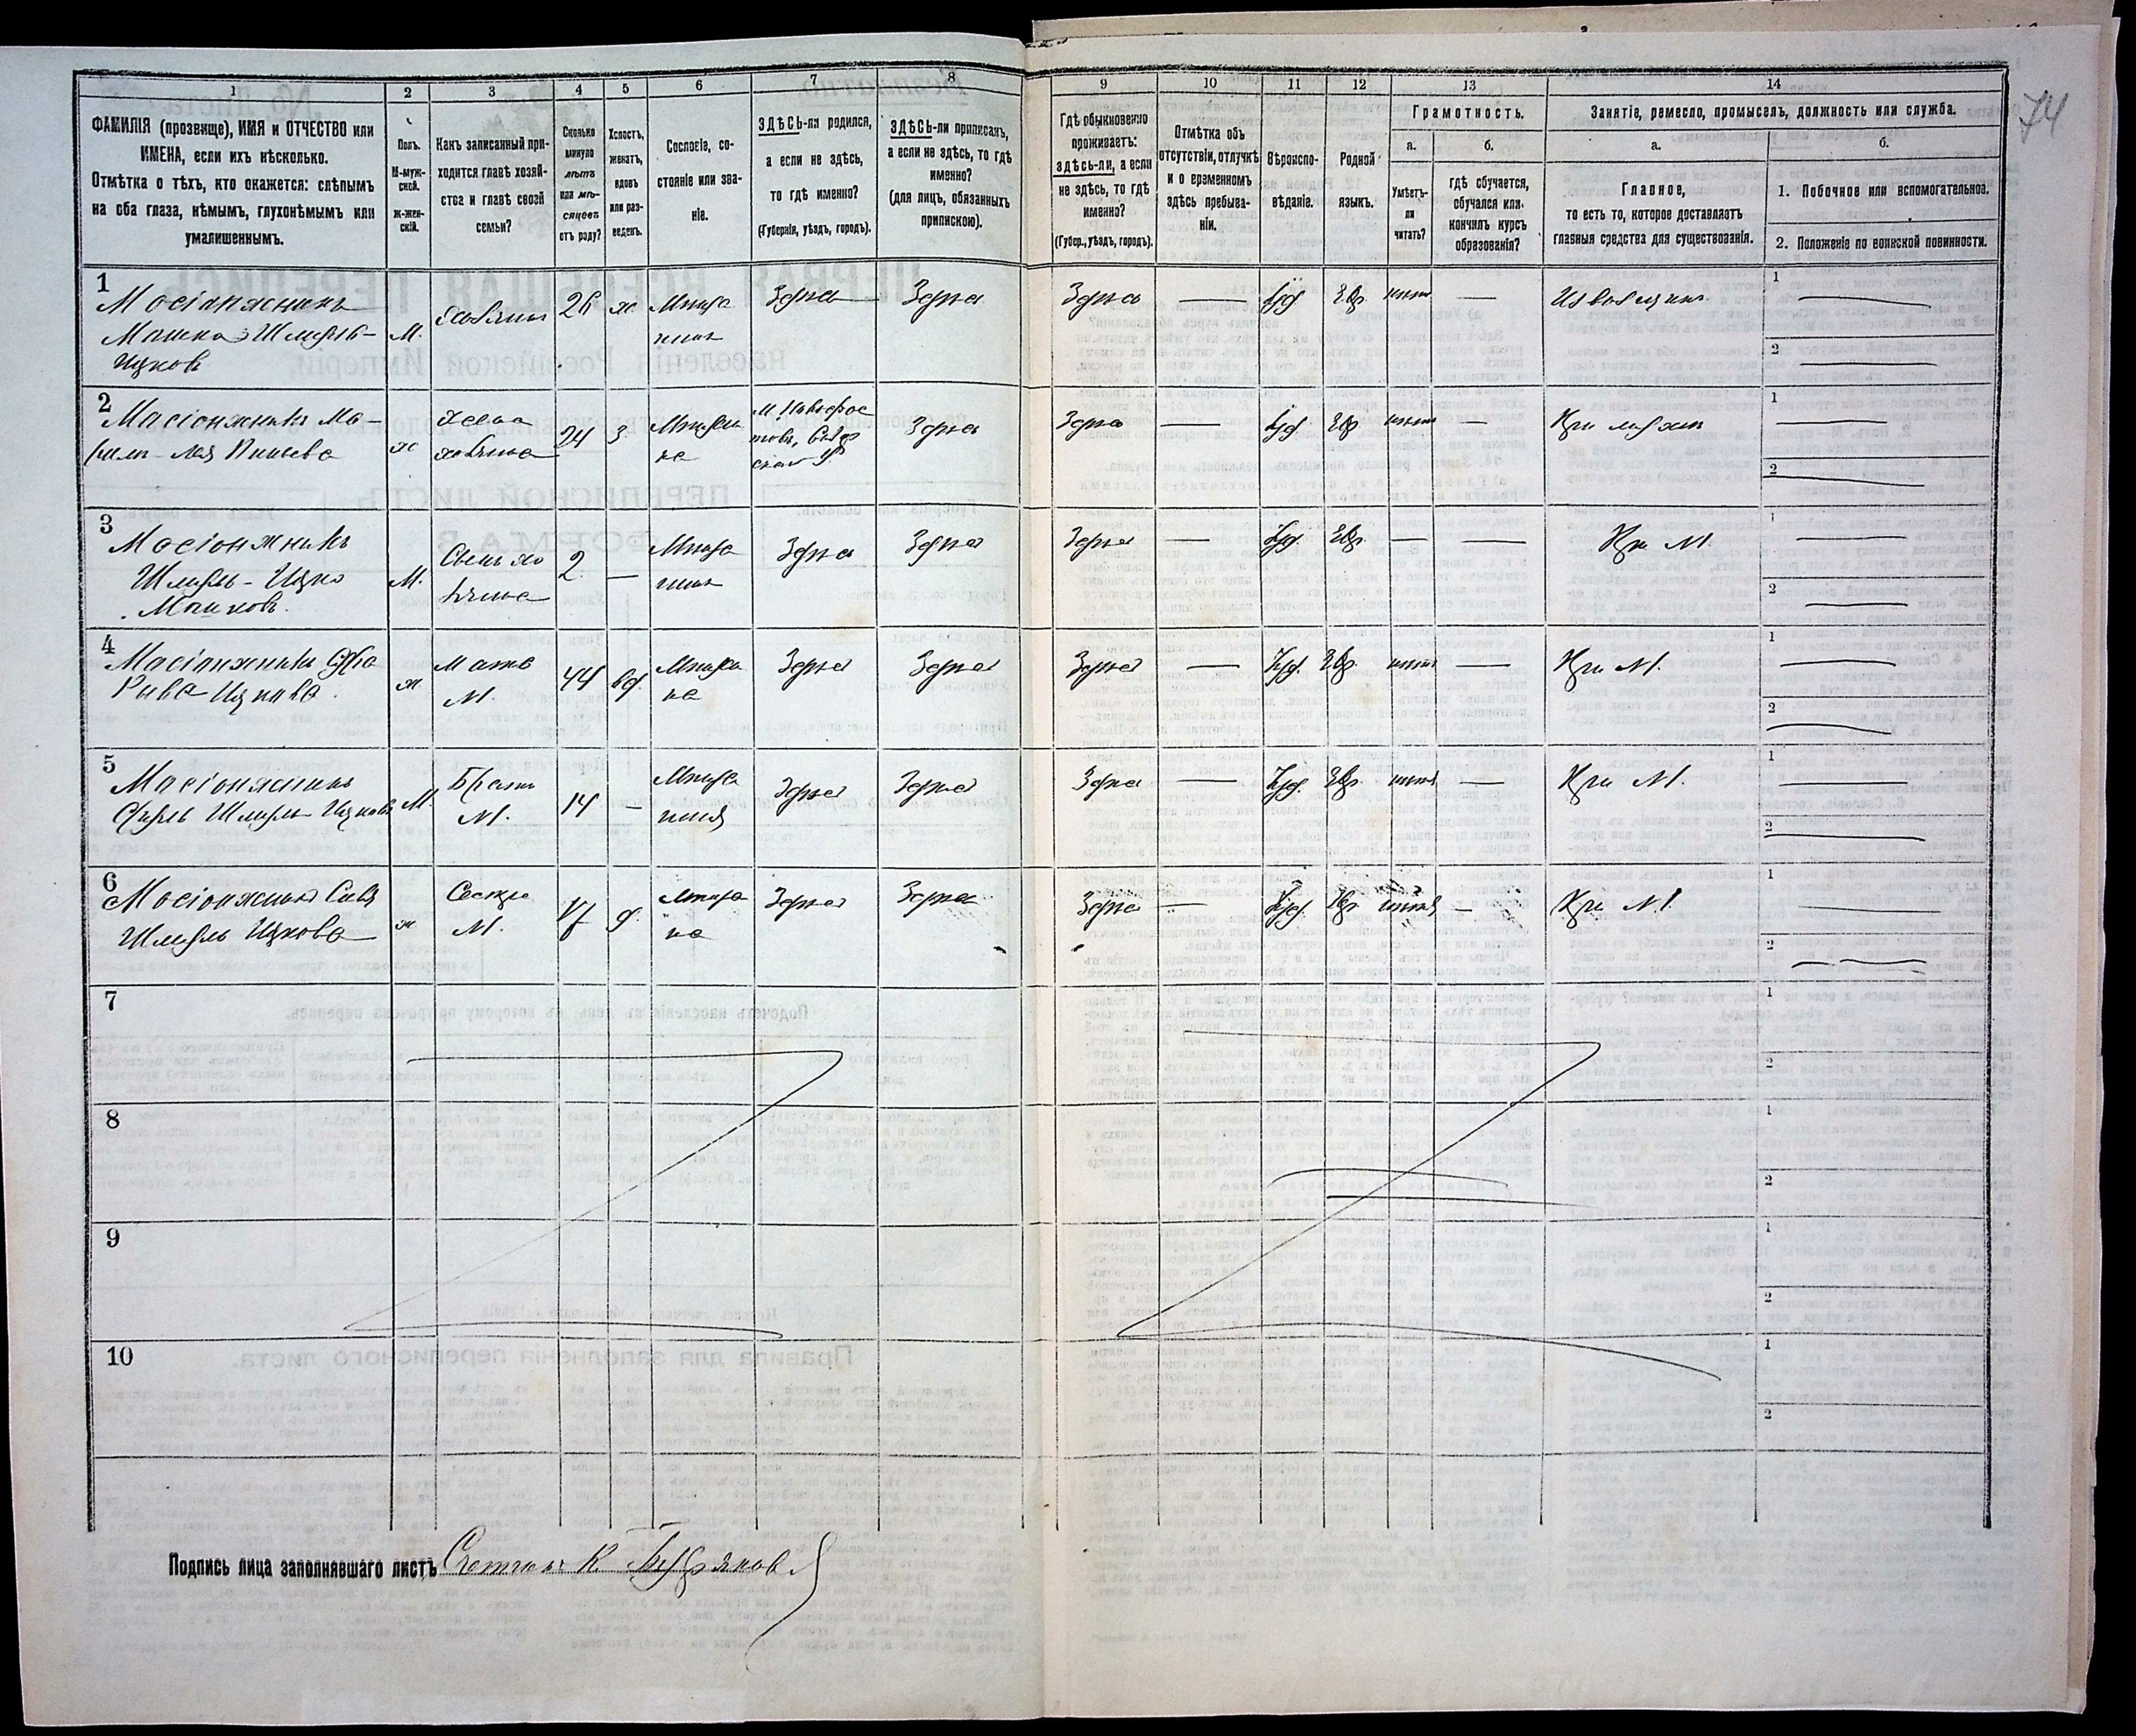 74
1
2
3
4
5
6
7
8
9
10
11
12
13
14
ФАМИЛІЯ (прозвище), ИМЯ и ОТЧЕСТВО или
ИМЕНА, если ихъ нѣсколько.
Отмѣтка о тѣхъ, кто окажется: слѣпымъ
на оба глаза, нѣмымъ, глухонѣмымъ или
умалишеннымъ.
Полъ.
М-муж-
ской.
ж-жен-
скій.
Какъ записанный при-
ходится главѣ хозяй-
ства и главѣ своей
семьи?
Сколько
минуло
лѣтъ
или мѣ-
сяцевъ
отъ роду?
Холостъ,
женатъ,
вдовъ
или раз-
веденъ.
Сословіе, со-
стояніе или зва-
ніе.
ЗДѢСЬ-ли родился,
а если не здѣсь,
то гдѣ именно?
(Губернія, уѣздъ, городъ).
ЗДѢСЬ-ли приписанъ,
а если не здѣсь, то гдѣ
именно?
(для лицъ, обязанныхъ
припискою).
Гдѣ обыкновенно
проживаетъ:
здѣсь-ли, а если
не здѣсь, то гдѣ
именно?
(Губер., уѣздъ, городъ).
Отмѣтка объ
отсутствіи, отлучкѣ
и о временномъ
здѣсь пребыва-
ніи.
Вѣроиспо-
вѣданіе.
Родной
языкъ.
Грамотность.
а.
Умѣетъ-
ли
читать?
б.
гдѣ обучается,
обучался или
кончилъ курсъ
образованія?
Занятіе, ремесло, промыселъ, должность или служба.
а.
Главное,
то есть то, которое доставляетъ
главныя средства для существованія.
б.
1. Побочное или вспомогательное.
2. Положеніе по воинской повинности.
1
Мошка Шмуль-
Ицков
М.
Хозяинъ
26
ж
Мѣща
нинъ
Здѣсь
Здѣсь
Здѣсь
Іуд
Евр
нѣтъ
Извощикъ
1
2
2
ж
Жена
хозяина
24
З
Мѣщан
ка
Здѣсь
Здѣсь
Іуд
Евр
нѣтъ
При мужѣ
1
2
3
Масіонжникъ
Шмуль-Ицко
Мошковъ.
М.
Сынъ хо
зяина
2
Мѣща
нинъ
Здѣсь
Здѣсь
Здѣсь
Іуд.
Евр.
При №1.
1
2
4
ж
Мать
№1.
44
вд.
Мѣщан
ка
Здѣсь
Здѣсь
Здѣсь
Іуд.
Евр.
нѣтъ
При №1.
1
2
5
Шмуль-Ицковъ
М
Братъ
№1.
14
Мѣща
нинъ
Здѣсь
Здѣсь
Здѣсь
Іуд.
Евр.
нѣтъ
При №1.
1
2
6
Шмуль Ицкова
ж
Сестра
№1.
17
д.
Мѣщан
ка
Здѣсь
Здѣсь
Здѣсь
Іуд.
Евр.
нѣтъ
При №1.
1
2
7
1
2
8
1
2
9
1
2
10
1
2
Подпись лица заполнявшаго листъ Счетчикъ К.